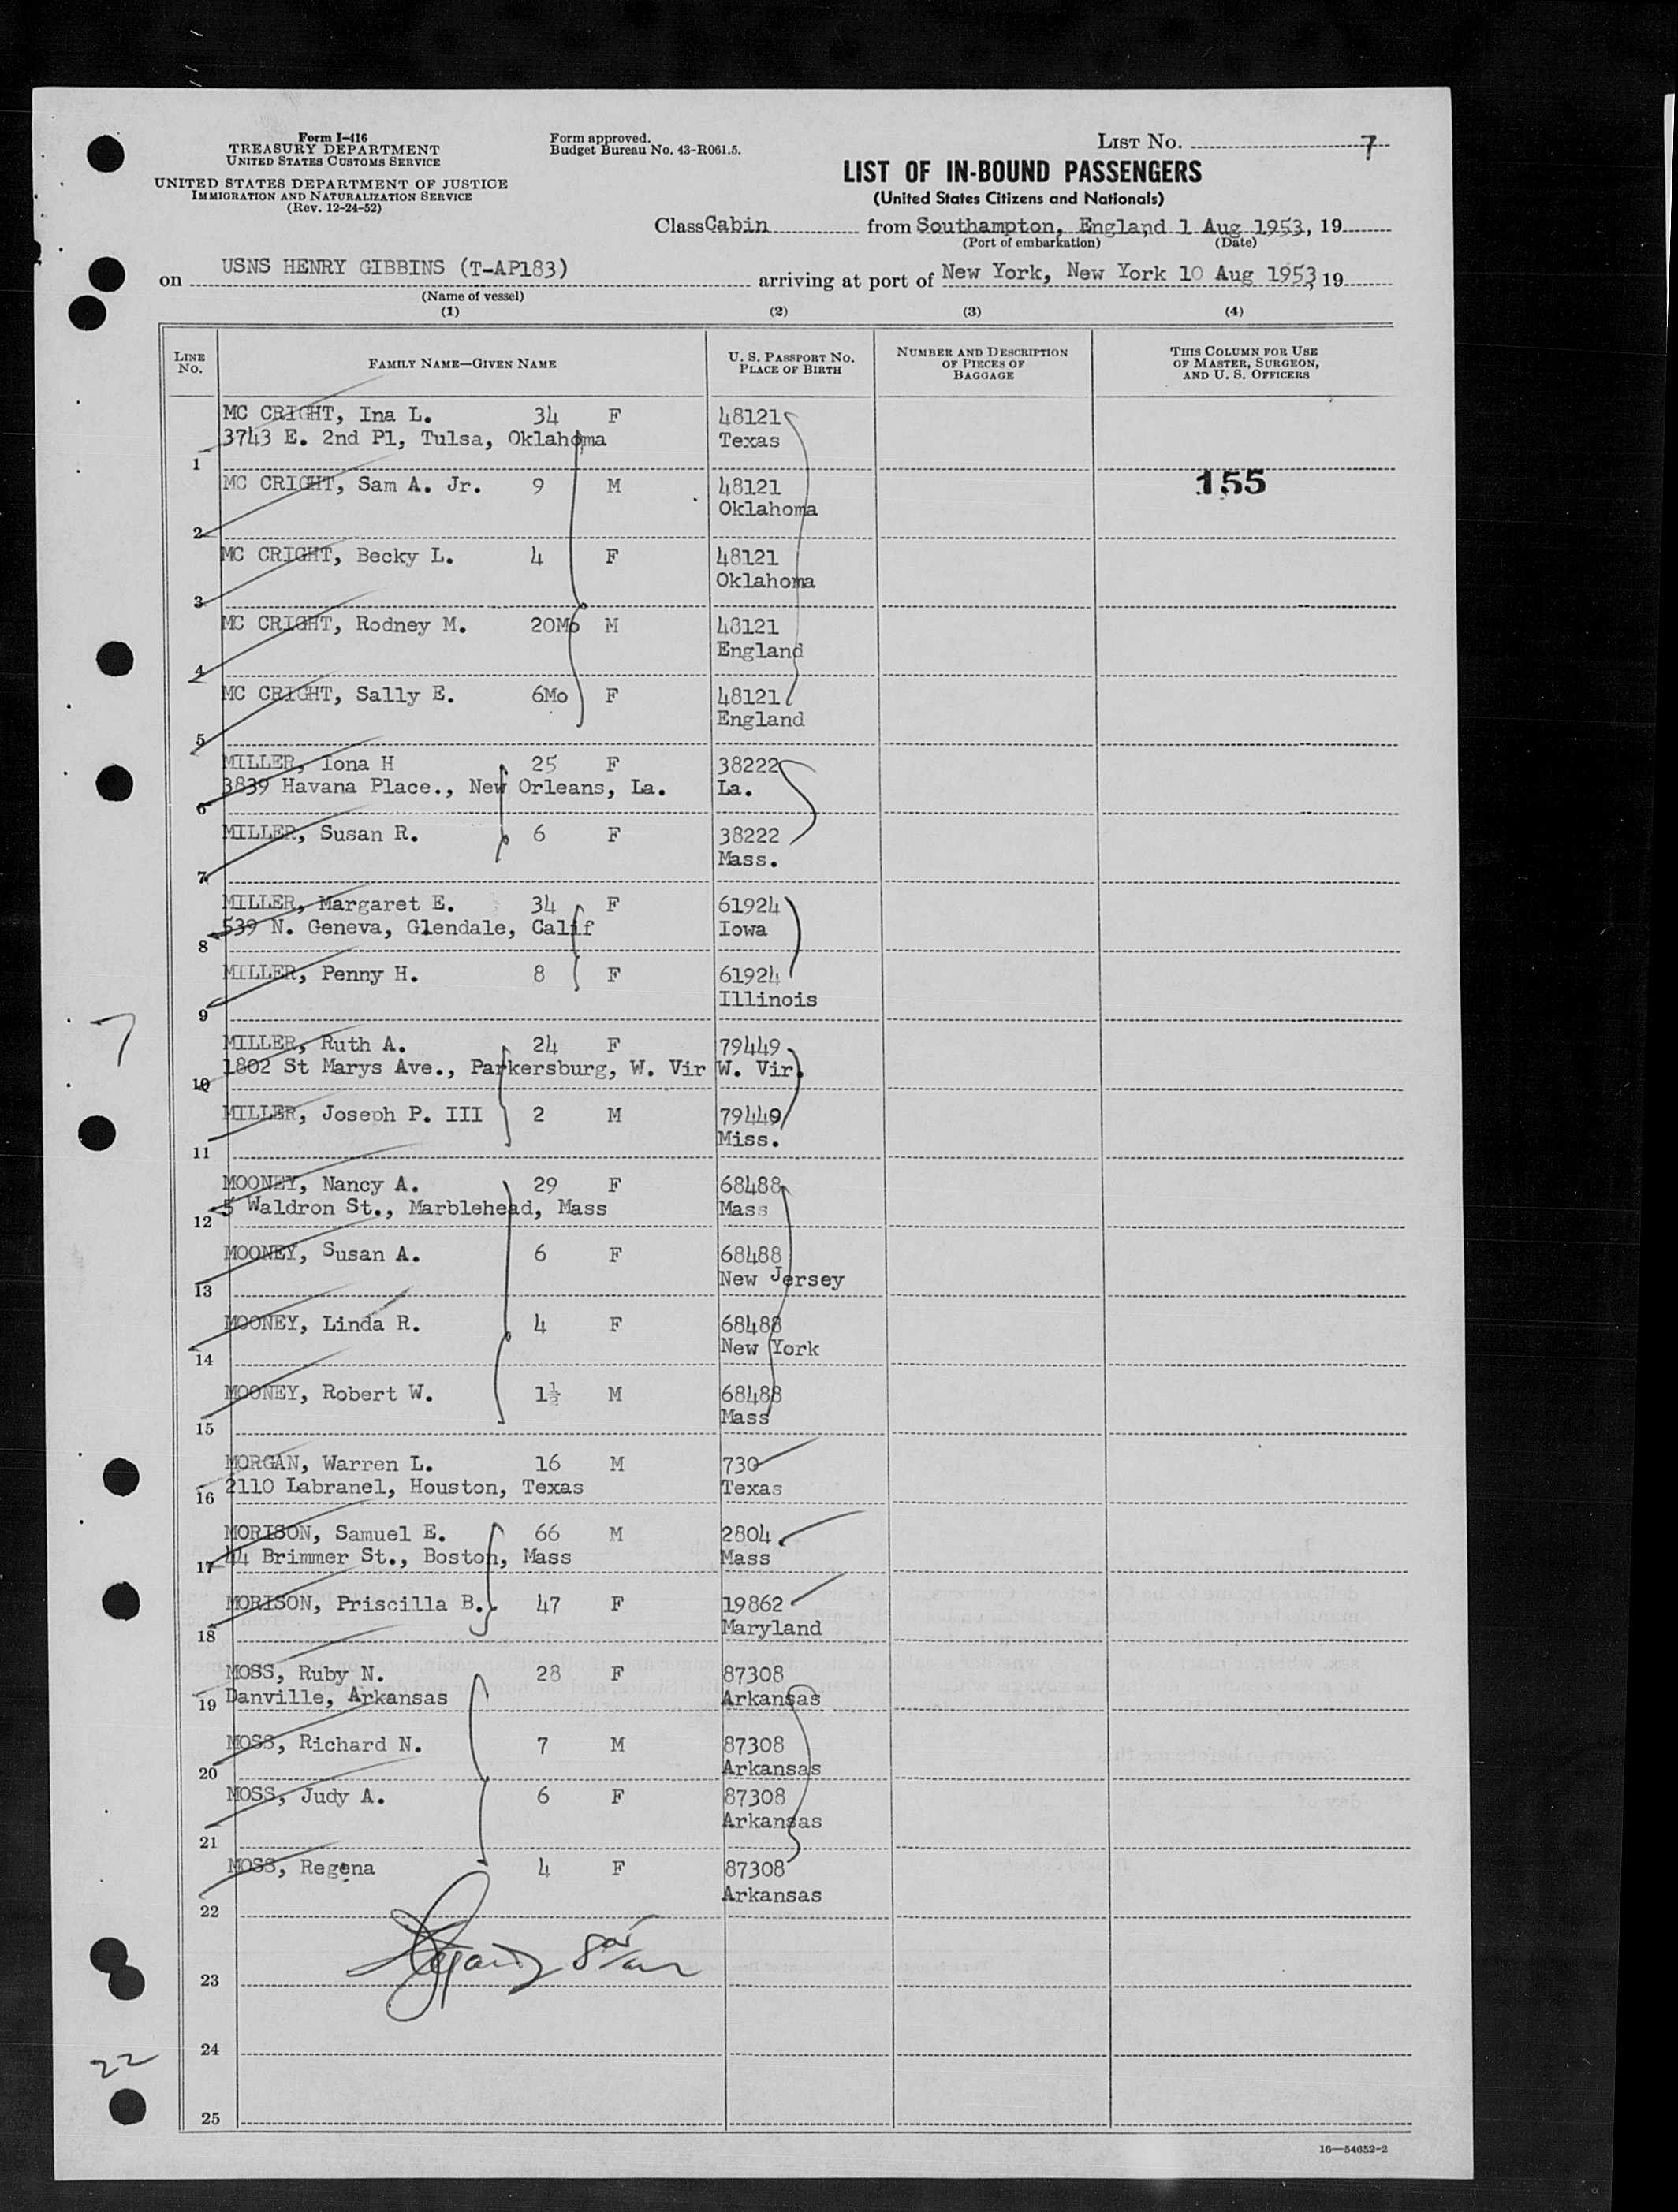 Form I-416
TREASURY DEPARTMENT
UNITED STATES CUSTOMS SERVICE
UNITED STATES DEPARTMENT OF JUSTICE
IMMIGRATION AND NATURALIZATION SERVICE
(Rev. 12-24-52)
Form approved.
Budget Bureau No. 43-R061.5.
LIST No. 7
LIST OF IN-BOUND PASSENGERS
(United States Citizens and Nationals)
Class Cabin from Southampton, England 1 Aug 1953, 19
(Port of embarkation) (Date)
on USNS HENRY GIBBINS (T-AP183) arriving at port of New York, New York 10 Aug 1953, 19
(Name of vessel)
(1) (2) (3) (4)
LINE No. FAMILY NAME—GIVEN NAME U. S. PASSPORT No. PLACE OF BIRTH NUMBER AND DESCRIPTION OF PIECES OF BAGGAGE THIS COLUMN FOR USE OF MASTER, SURGEON, AND U. S. OFFICERS
MC CRIGHT, Ina L. 34 F 48121
3743 E. 2nd Pl, Tulsa, Oklahoma Texas
1
MC CRIGHT, Sam A. Jr. 9 M 48121 155
Oklahoma
2
MC CRIGHT, Becky L. 4 F 48121
Oklahoma
3
MC CRIGHT, Rodney M. 20Mo M 48121
England
4
MC CRIGHT, Sally E. 6Mo F 48121
England
5
MILLER, Iona H 25 F 38222
3839 Havana Place., New Orleans, La. La.
6
MILLER, Susan R. 6 F 38222
Mass.
7
MILLER, Margaret E. 34 F 61924
539 N. Geneva, Glendale, Calif Iowa
8
MILLER, Penny H. 8 F 61924
Illinois
9
MILLER, Ruth A. 24 F 79449
1802 St Marys Ave., Parkersburg, W. Vir W. Vir.
10
MILLER, Joseph P. III 2 M 79449
Miss.
11
MOONEY, Nancy A. 29 F 68488
5 Waldron St., Marblehead, Mass Mass
12
MOONEY, Susan A. 6 F 68488
New Jersey
13
MOONEY, Linda R. 4 F 68488
New York
14
MOONEY, Robert W. 1½ M 68488
Mass
15
MORGAN, Warren L. 16 M 730
2110 Labranel, Houston, Texas Texas
16
MORISON, Samuel E. 66 M 2804
44 Brimmer St., Boston, Mass Mass
17
MORISON, Priscilla B. 47 F 19862
Maryland
18
MOSS, Ruby N. 28 F 87308
Danville, Arkansas Arkansas
19
MOSS, Richard N. 7 M 87308
Arkansas
20
MOSS, Judy A. 6 F 87308
Arkansas
21
MOSS, Regena 4 F 87308
Arkansas
22
23
24
25
7
22
16—54652-2